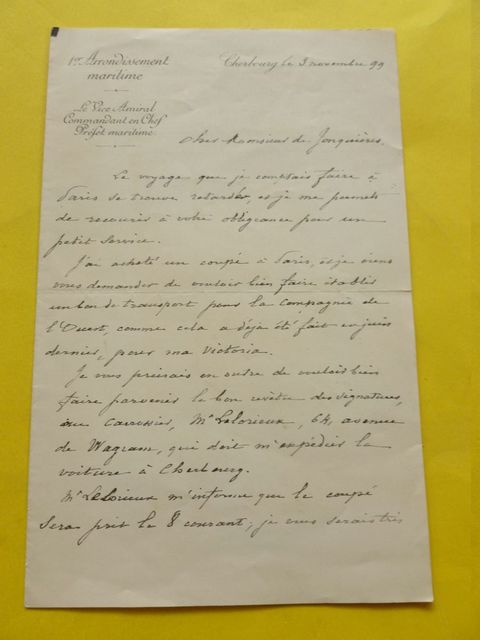 1er Arrondissement
maritime
Cherbourg le 3 novembre 99
Le Vice Amiral
Commandant en Chef
Préfet maritime
Cher Monsieur de Jonquières.
Le voyage que je comptais faire à
Paris se trouve retardé, et je me permets
de recourir à votre obligeance pour un
petit service.
J'ai acheté un coupé à Paris, et je viens
vous demander de vouloir bien faire établir
un bon de transport pour la Compagnie de
l'Ouest, comme cela a déjà été fait en juin
dernier, pour ma Victoria.
Je vous prierais en outre de vouloir bien
faire parvenir le bon revêtu des signatures,
au carrossier, Mr Lelorieux, 64, avenue
de Wagram, qui doit m'expédier la
voiture à Cherbourg.
Mr Lelorieux m'informe que le coupé
sera prêt le 8 courant; je vous serais très